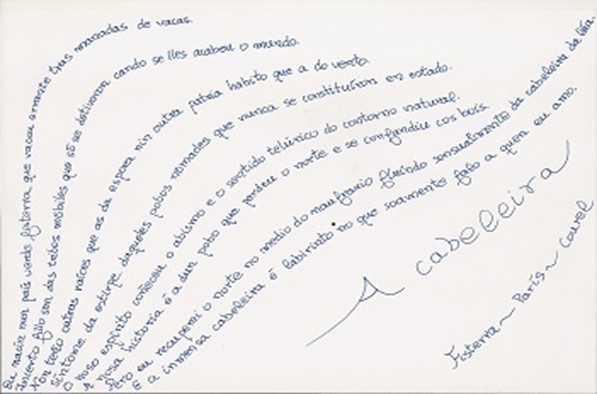 Eu nacín nun país verde fisterra que vacou errante tras manadas de vacas.
Incerto fillo son das tribos móbiles que só se detiveron cando se lles acabou o mundo.
Non teño outras raíces que as da espora nin outra patria habito que a do vento.
Síntome da estirpe daqueles pobos nómades que nunca se constituíron en estado.
O noso espírito comezou o abismo e o sentido telúrico do contorno natural.
A nosa historia é a dun pobo que perdeu o norte e se confundiu cos bois.
Pero eu recuperei o norte no medio do naufraxio fluíndo sensualmente da cabeleira da
E a inmensa cabeleira é labirinto no que soamente falo a quen eu amo.
A cabeleira
Fisterra ~ París ~ Courel